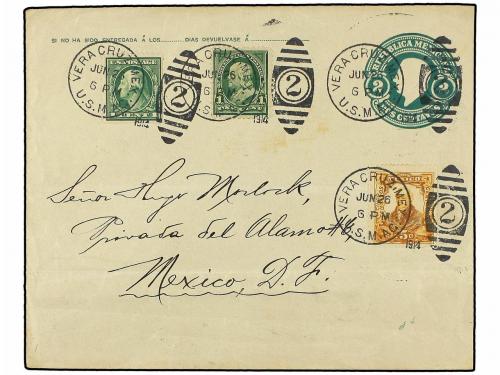 SI NO HA SIDO ENTREGADA Á LOS............DIAS DEVUELVASE Á
VERA CRUZ, MEX.
JUN 26
6 PM
U.S.M.AG.
1914
2
U.S. POSTAGE
1 CENT 1
VERA CRUZ, MEX.
JUN 26
6 PM
U.S.M.AG.
1914
2
REPUBLICA MEXICANA
2 DOS CENTAVOS 2
VERA CRUZ, MEX.
JUN 26
6 PM
U.S.M.AG.
1914
2
Señor Hugo Morlock,
Privada del Alamo #6,
Mexico, D. F.